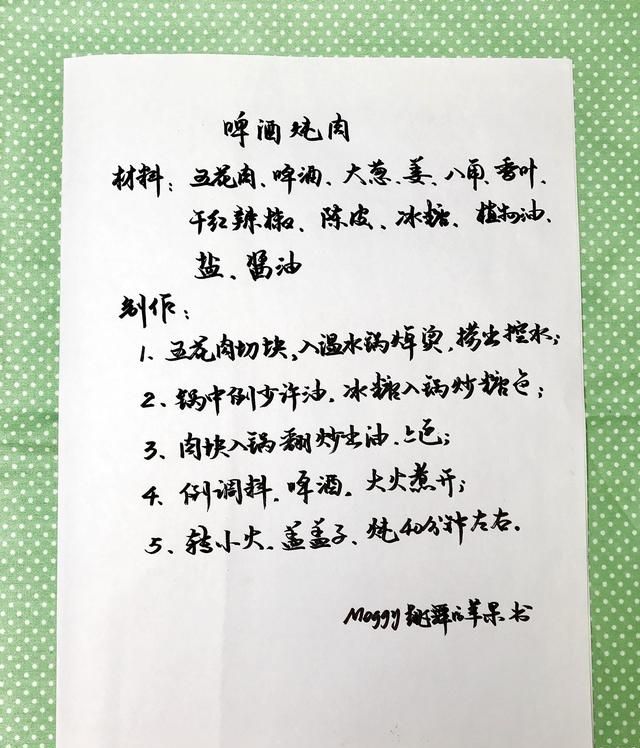 啤酒炖肉
材料：五花肉、啤酒、大葱、姜、八角、香叶、
干红辣椒、陈皮、冰糖、植物油、
盐、酱油
制作：
1、五花肉切块，入温水锅焯烫，捞出控水；
2、锅中倒少许油，冰糖入锅炒糖色；
3、肉块入锅翻炒出油、上色；
4、倒调料、啤酒，大火煮开；
5、转小火，盖盖子、炖40分钟左右。
Moggy跳舞的苹果 书